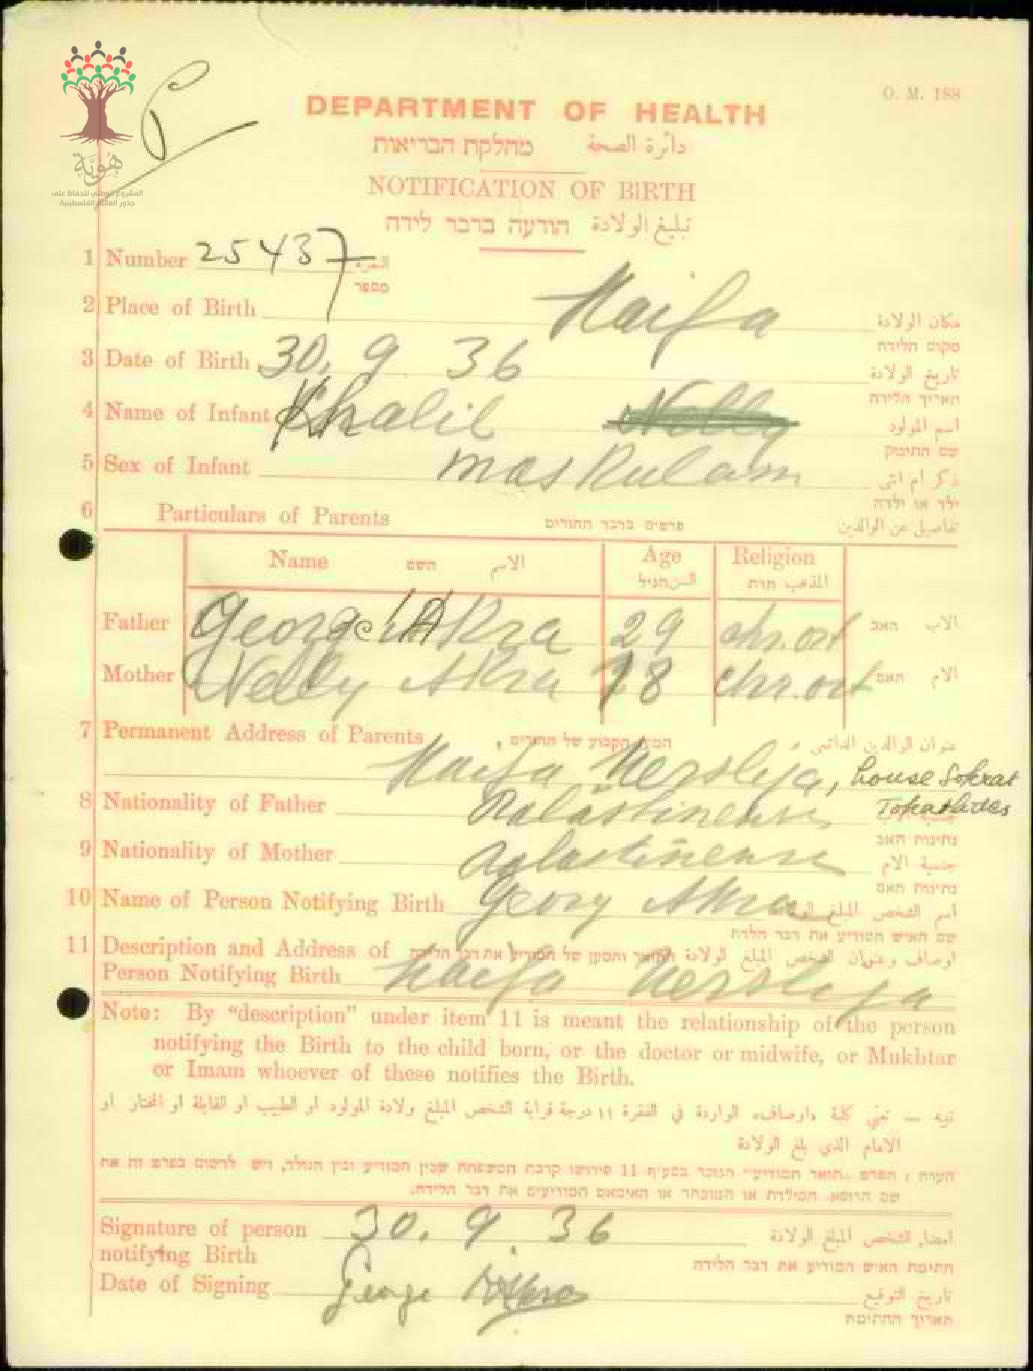 هوية
المشروع الوطني للحفاظ على
جذور العائلة الفلسطينية
O. M. 188
DEPARTMENT OF HEALTH
מחלקת הבריאות دائرة الصحة
NOTIFICATION OF BIRTH
הודעה בדבר לידה تبليغ الولادة
1 Number 25437 النمرة
מספר
2 Place of Birth Haifa مكان الولادة
מקום הלידה
3 Date of Birth 30. 9. 36 تاريخ الولادة
תאריך הלידה
4 Name of Infant Khalil Nelly اسم المولود
שם התינוק
5 Sex of Infant maskulam ذكر ام انثى
ילד או ילדה
6 Particulars of Parents פרטים בדבר ההורים تفاصيل عن الوالدين
Name השם الاسم Age السن הגיל Religion المذهب הדת
Father George Akra 29 chr. ort האב الاب
Mother Nelly Akra 18 chr. ort האם الام
7 Permanent Address of Parents המען הקבוע של ההורים عنوان الوالدين الدائمي
Haifa Hersleja, house Sokrat
8 Nationality of Father Palastinense
נתינות האב
9 Nationality of Mother Palastinense جنسية الام
נתינות האם
10 Name of Person Notifying Birth Georg Akra اسم الشخص المبلغ الولادة
שם האיש המודיע את דבר הלדת
11 Description and Address of התואר והמען של המודיע את דבר הלידה اوصاف وعنوان الشخص المبلغ الولادة
Person Notifying Birth Haifa Hersleja
Note: By "description" under item 11 is meant the relationship of the person
notifying the Birth to the child born, or the doctor or midwife, or Mukhtar
or Imam whoever of these notifies the Birth.
تنبيه — تعني كلمة «اوصاف» الواردة في الفقرة ١١ درجة قرابة الشخص المبلغ ولادة المولود او الطبيب او القابلة او المختار او
الامام الذي بلغ الولادة
הערה : הפרט "תואר המודיע" הנזכר בסע"ף 11 פירושו קרבת המשפחה שבין המודיע ובין הנולד, ויש לרשום בפרט זה את
שם הרופא, המילדת או המוכתר או האימאם המודיעים את דבר הלידה.
Signature of person 30. 9. 36 امضاء الشخص المبلغ الولادة
notifying Birth חתימת האיש המודיע את דבר הלידה
Date of Signing George Akra تاريخ التوقيع
תאריך החתימה